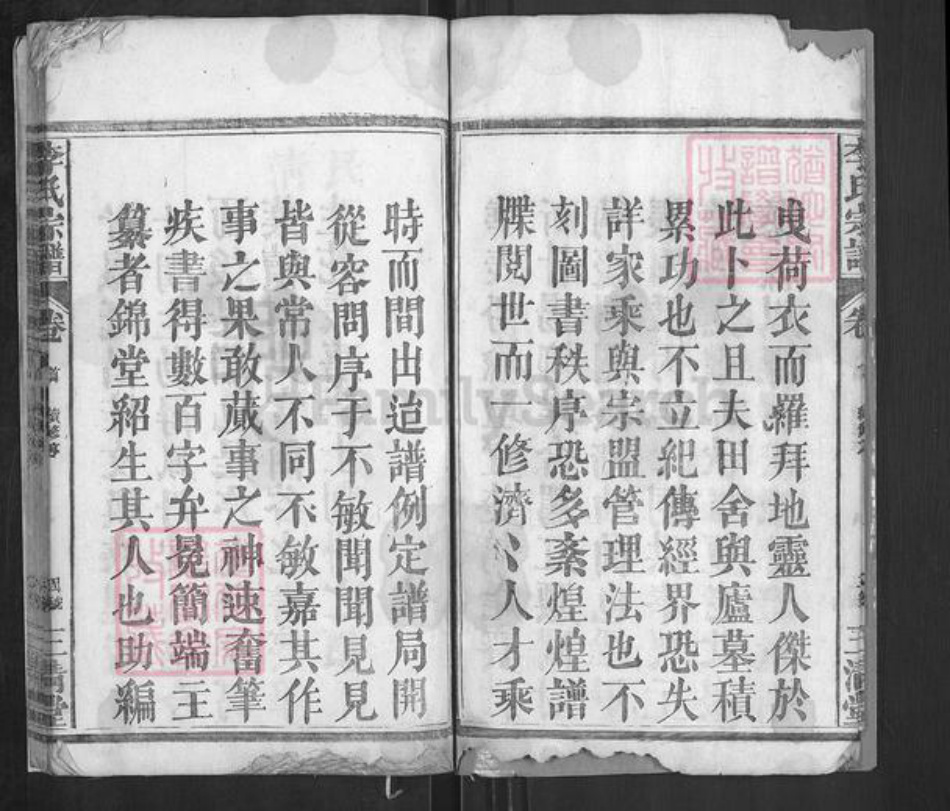 曳荷衣而羅拜地靈人傑於
此卜之且夫田舍與廬墓積
累功也不立紀傳經界恐失
詳家乘與宗盟管理法也不
刻圖書秩序恐多紊煌煌譜
牒閱世而一修濟〻人才乘
時而間出迨譜例定譜局開
從容問序于不敏聞聞見見
皆與常人不同不敏嘉其作
事之果敢蕆事之神速奮筆
疾書得數百字弁冕簡端主
纂者錦堂紹生其人也助編
李氏宗譜
卷
三清堂
FamilySearch